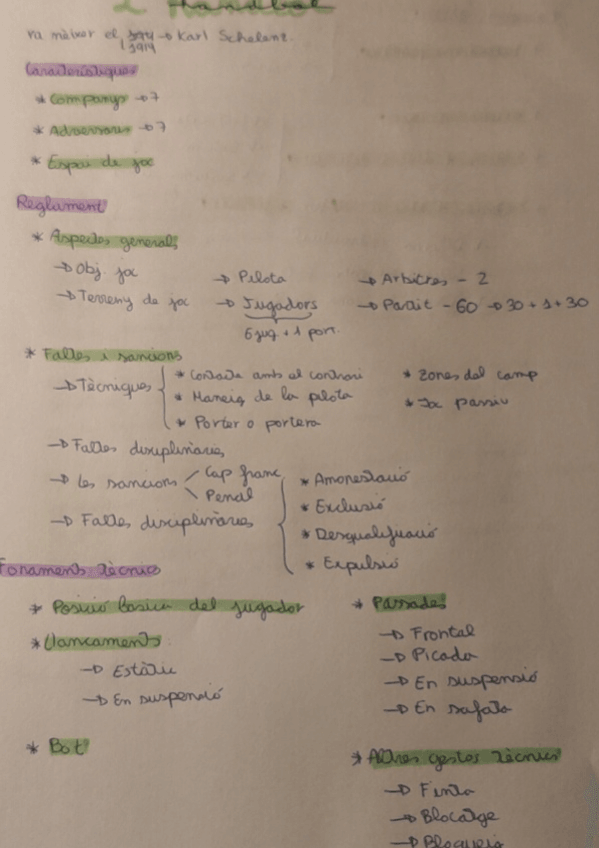 2 Handbol
va nèixer el 1919 → Karl Schelenz.
Característiques
* Companys → 7
* Adversaris → 7
* Espai de joc
Reglament
* Aspectes generals
→ Obj. joc → Pilota → Arbitres - 2
→ Terreny de joc → Jugadors → Partit - 60 → 30 + 1 + 30
6 jug + 1 port.
* Faltes i sancions
→ Tècniques * Contacte amb el contrari * Zones del camp
* Maneig de la pilota * Joc passiu
* Porter o portera
→ Faltes disciplinàries
→ Les sancions Cop franc
Penal
→ Faltes disciplinàries * Amonestació
* Exclusió
* Desqualificació
* Expulsió
Fonaments tècnics
* Posició bàsica del jugador * Passades
* Llançaments: → Frontal
→ Estàtic → Picada
→ En suspensió → En suspensió
→ En safata
* Bot * Altres gestos tècnics
→ Finta
→ Blocatge
→ Bloqueig